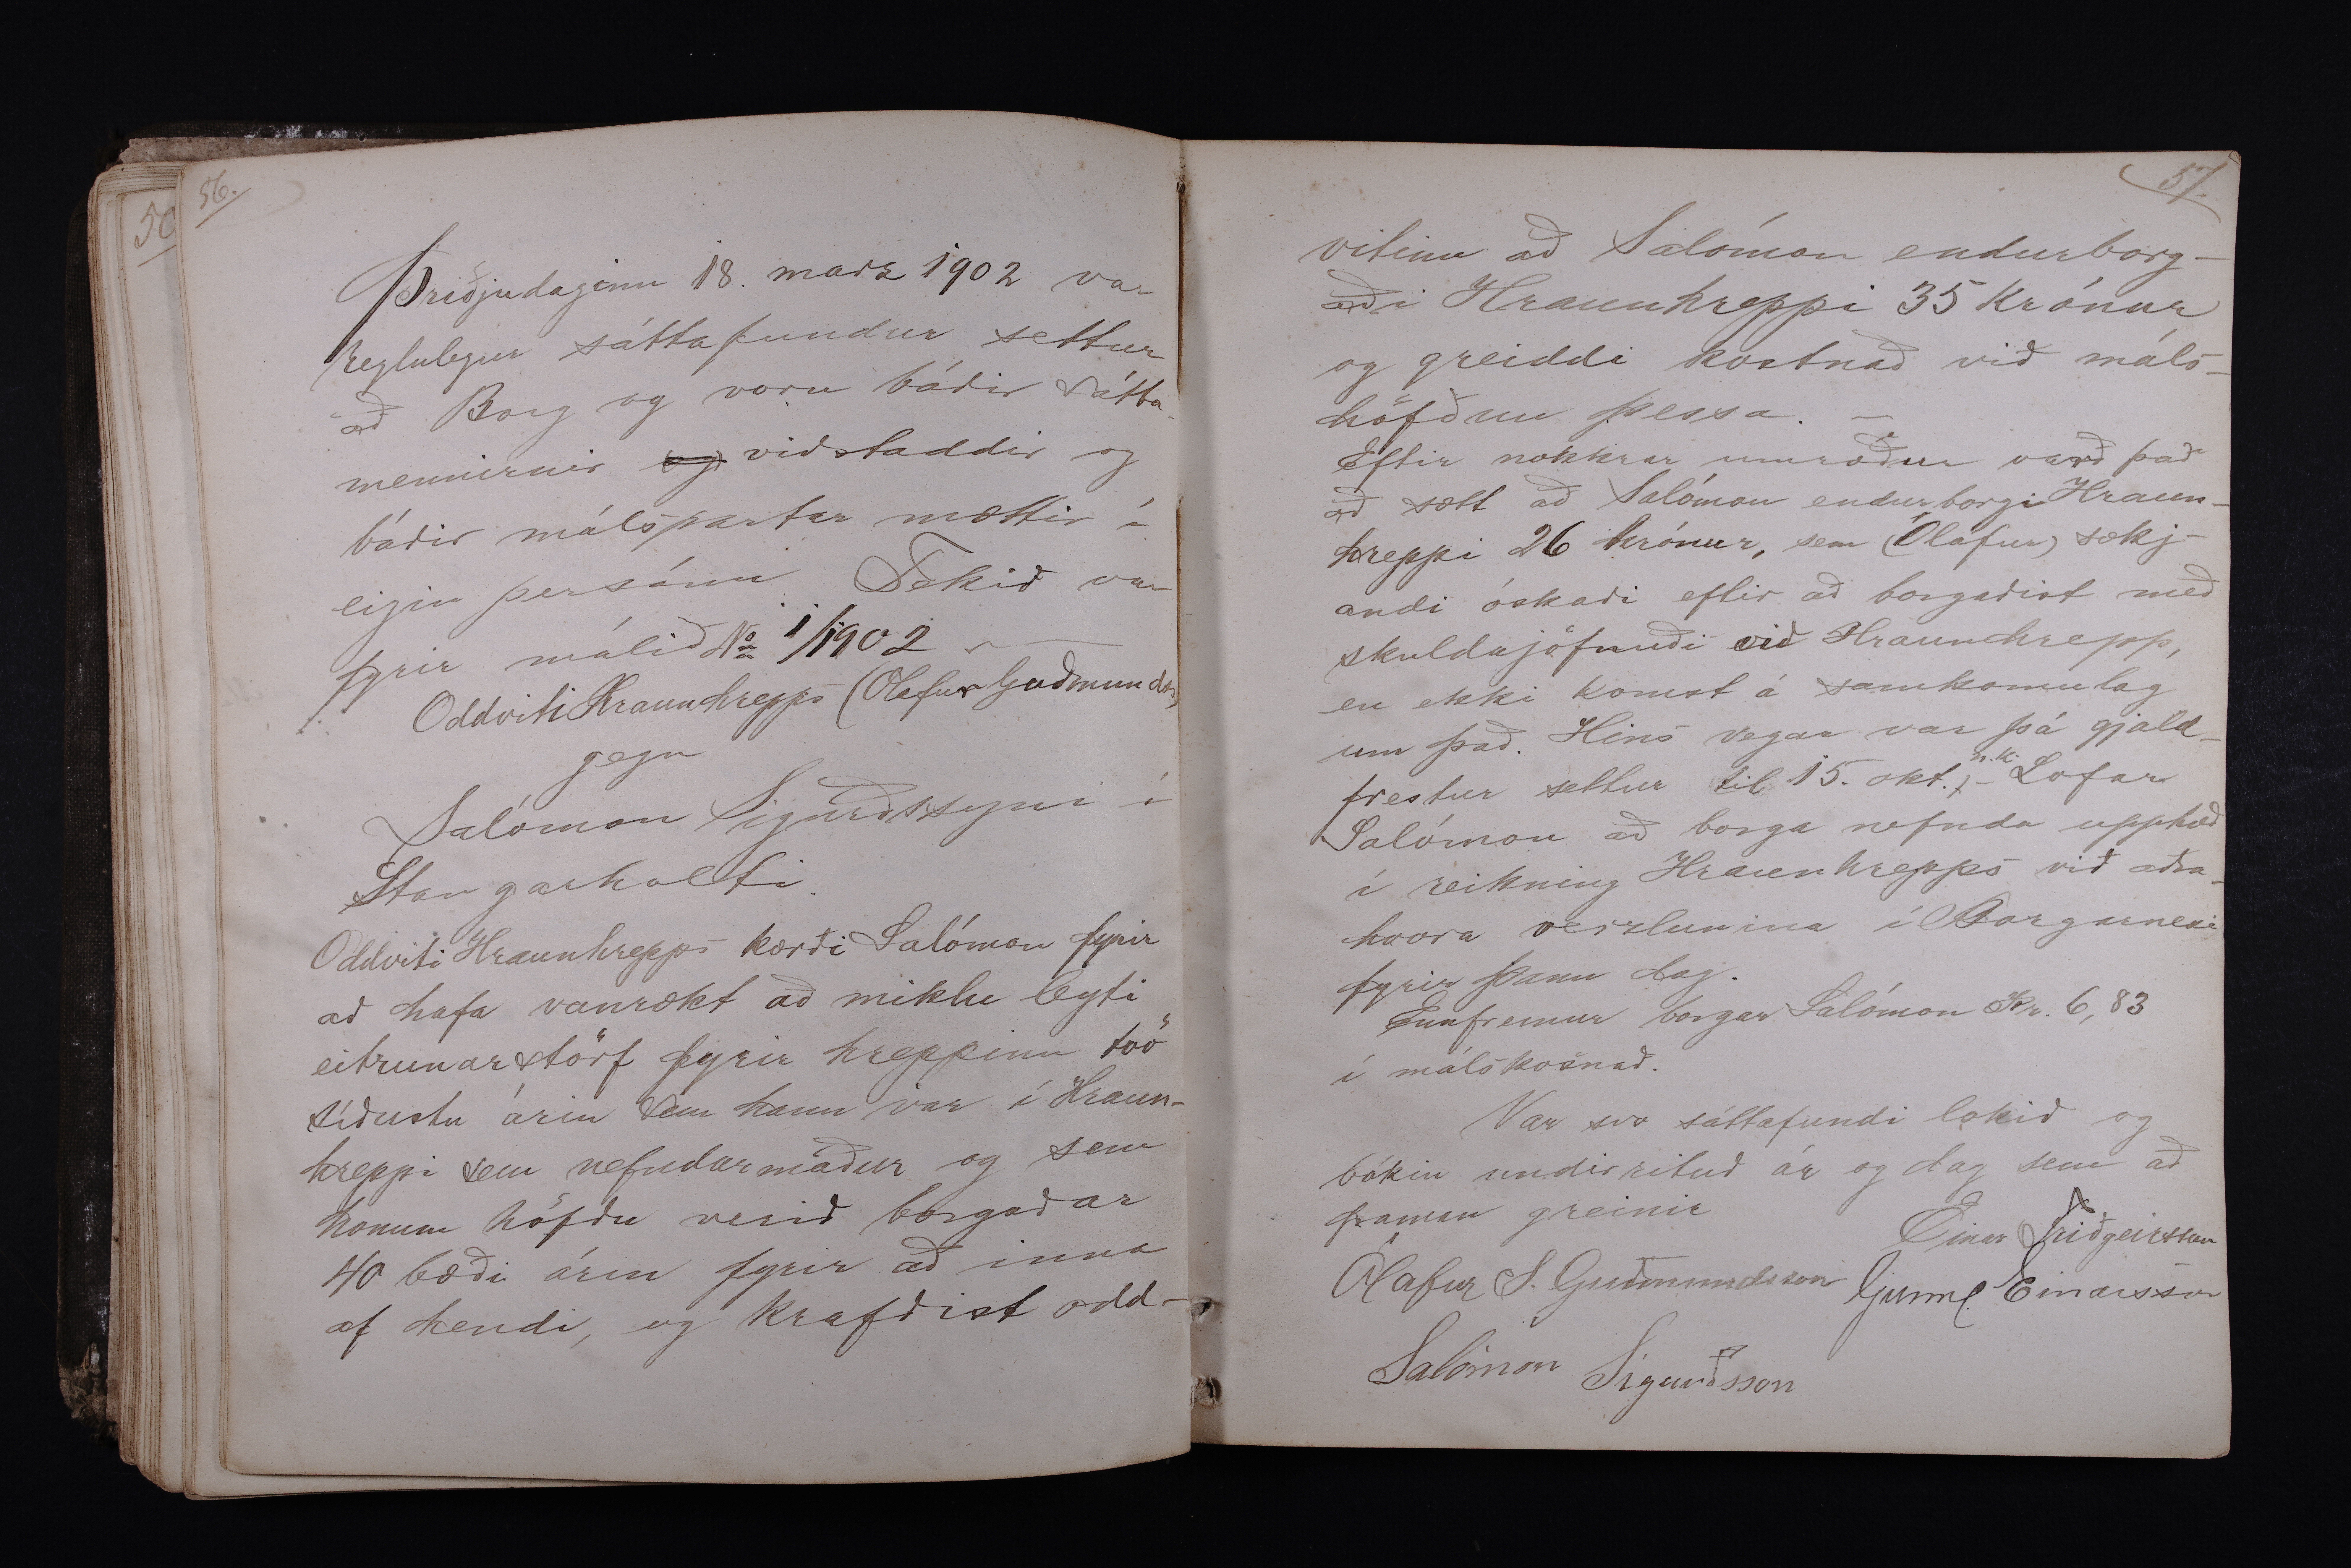 50
56.
Þriðjudaginn 18. marz 1902 var
reglulegur sáttafundur settur
að Borg og voru báðir sátta-
mennirnir og viðstaddir og
báðir málspartar mættir í
eigin persónu Tekið var
fyrir málið No 1/1902
Oddviti Hraunhrepps (Ólafur Guðmundss)
gegn
Salómon Sigurðssyni í
Stangarholti.
Oddviti Hraunhrepps kærði Salómon fyrir
að hafa vanrækt að miklu leyti
eitrunarstörf fyrir hreppinn tvö
síðustu árin sem hann var í Hraun-
hreppi sem nefndarmaður og sem
honum höfðu verið borgaðar
40 bæði árin fyrir að inna
af hendi, og krafðist odd-
57.
vitinn að Salómon endurborg-
aði Hraunhreppi 35 krónur
og greiddi kostnað við máls-
höfðun þessa. -
Eftir nokkrar umræður varð það
að sætt að Salómon endurborgi Hraun-
hreppi 26 krónur, sem (Ólafur) sækj-
andi óskaði eftir að borgaðist með
skuldajöfnuði við Hraunhrepp,
en ekki komst á samkomulag
um það. Hins vegar var þá gjald-
frestur settur til 15. okt. n.k. - Lofar
Salómon að borga nefnda upphæð
í reikning Hraunhrepps við aðra-
hvora verzlunina í Borgarnesi
fyrir þann dag.
Ennfremur borgar Salómon Kr. 6,83
í málskosnað.
Var svo sáttafundi lokið og
bókin undirrituð ár og dag sem að
framan greinir
Einar Friðgeirsson
Ólafur S. Guðmundsson Gunnl Einarsson
Salómon Sigurðsson